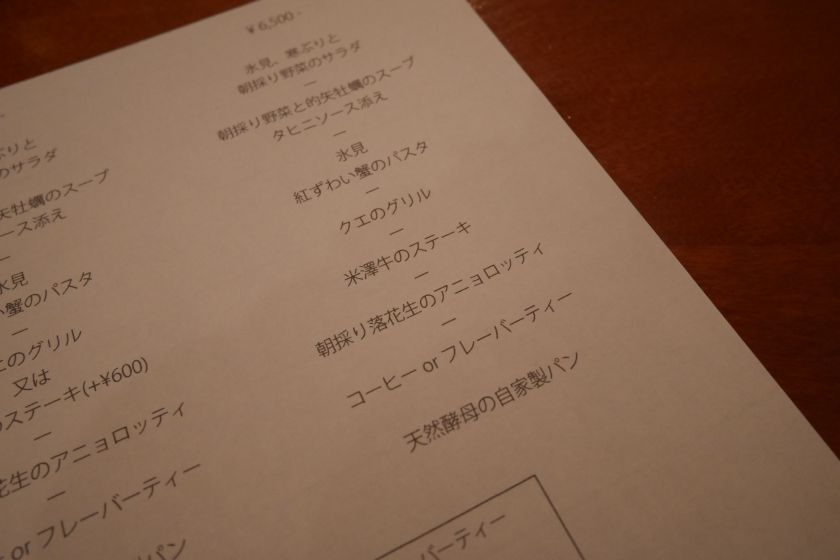 ぶりと
のサラダ
矢牡蠣のスープ
ース添え
氷見
い蟹のパスタ
このグリル
又は
ステーキ(+¥600)
花生のアニョロッティ
or フレーバーティー
パン
¥6,500-
氷見、寒ぶりと
朝採り野菜のサラダ
—
朝採り野菜と的矢牡蠣のスープ
タヒニソース添え
—
氷見
紅ずわい蟹のパスタ
—
クエのグリル
—
米澤牛のステーキ
—
朝採り落花生のアニョロッティ
—
コーヒー or フレーバーティー
天然酵母の自家製パン
バーティー